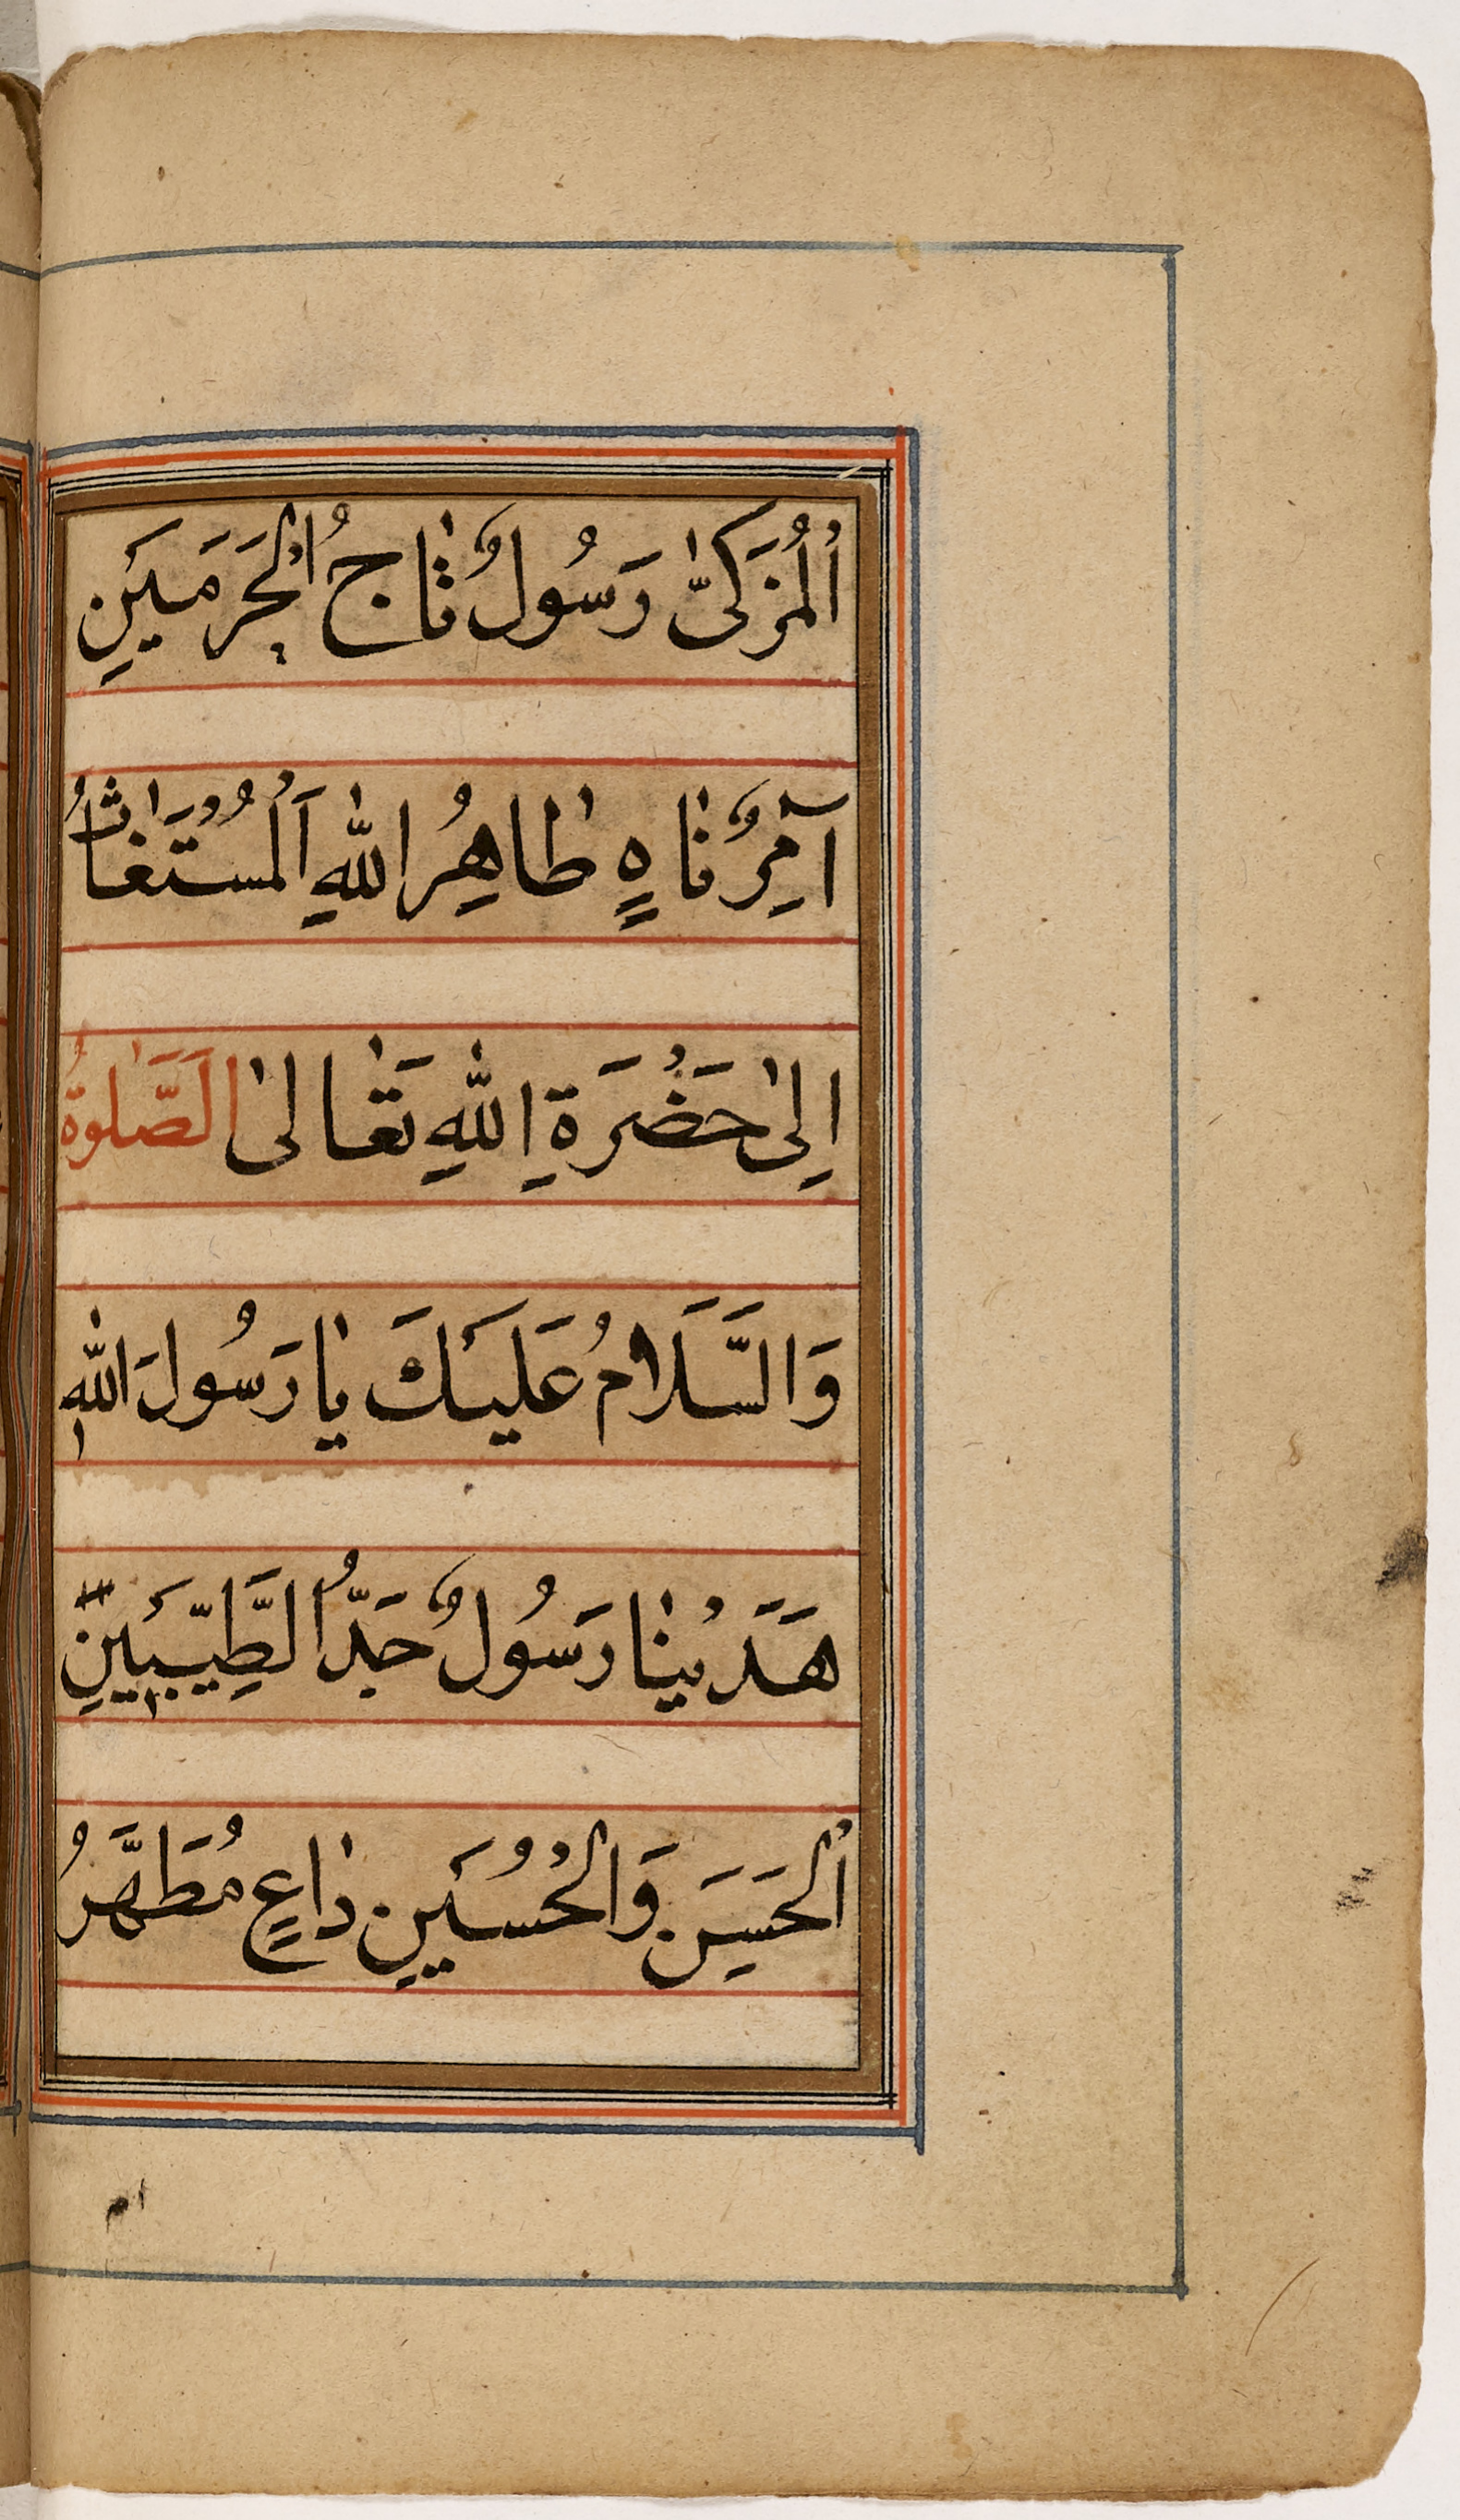 اَلْمُزَكّٰى رَسُولٌ تَاجُ الْحَرَمَيْنِ
آمِرٌ نَاهٍ طَاهِرُ اللّٰهِ اَلْمُسْتَغَاثُ
اِلٰى حَضْرَةِ اللّٰهِ تَعَالٰى اَلصَّلٰوةُ
وَالسَّلَامُ عَلَيْكَ يَا رَسُولَ اللّٰهِ
هَدَيْنَا رَسُولٌ جَدُّ الطَّيِّبَيْنِ
اَلْحَسَنِ وَالْحُسَيْنِ دَاعٍ مُطَهَّرُ